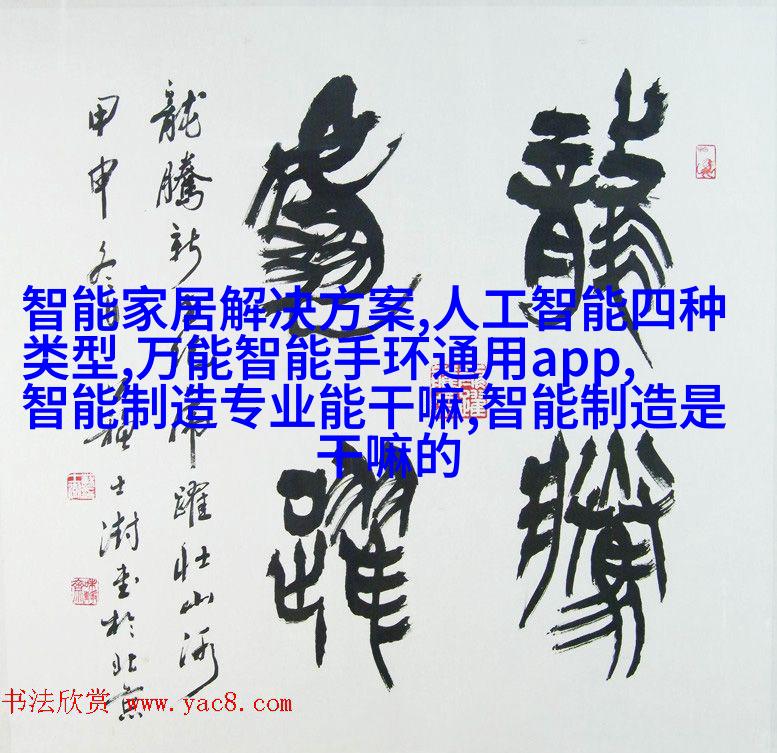 龍騰
虎躍
龍騰新
虎躍壯山河
甲申冬月
士澍書於北京
智能家居解决方案,人工智能四种
类型,万能智能手环通用app,
智能制造专业能干嘛,智能制造是
干嘛的
书法欣赏 www.yac8.com